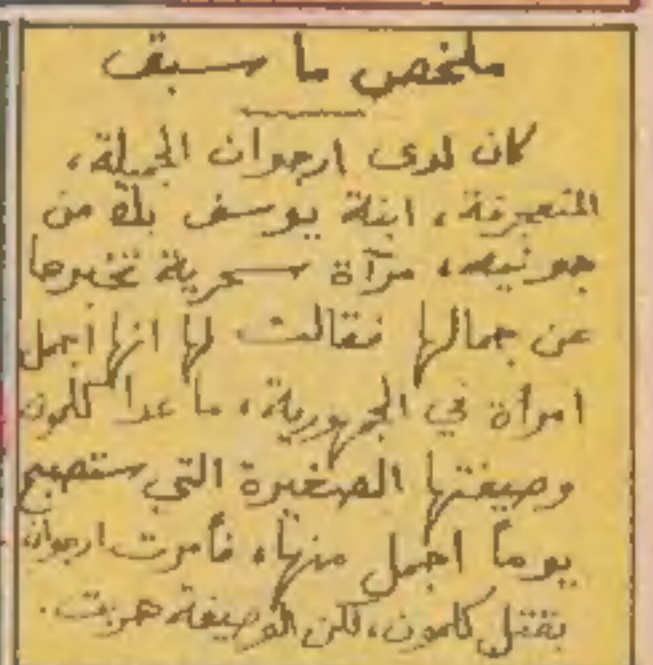 ملخص ما سبق
كان لدى ارجوان الجميلة،
المتعجرفة، ابنة يوسف بك من
جونيه، مرآة سحرية تخبرها
عن جمالها فقالت لها انها أجمل
امرأة في الجمهورية، ما عدا كلمون
وصيفتها الصغيرة التي ستصبح
يوماً اجمل منها، فأمرت ارجوان
بقتل كلمون، لكن الوصيفة هربت.